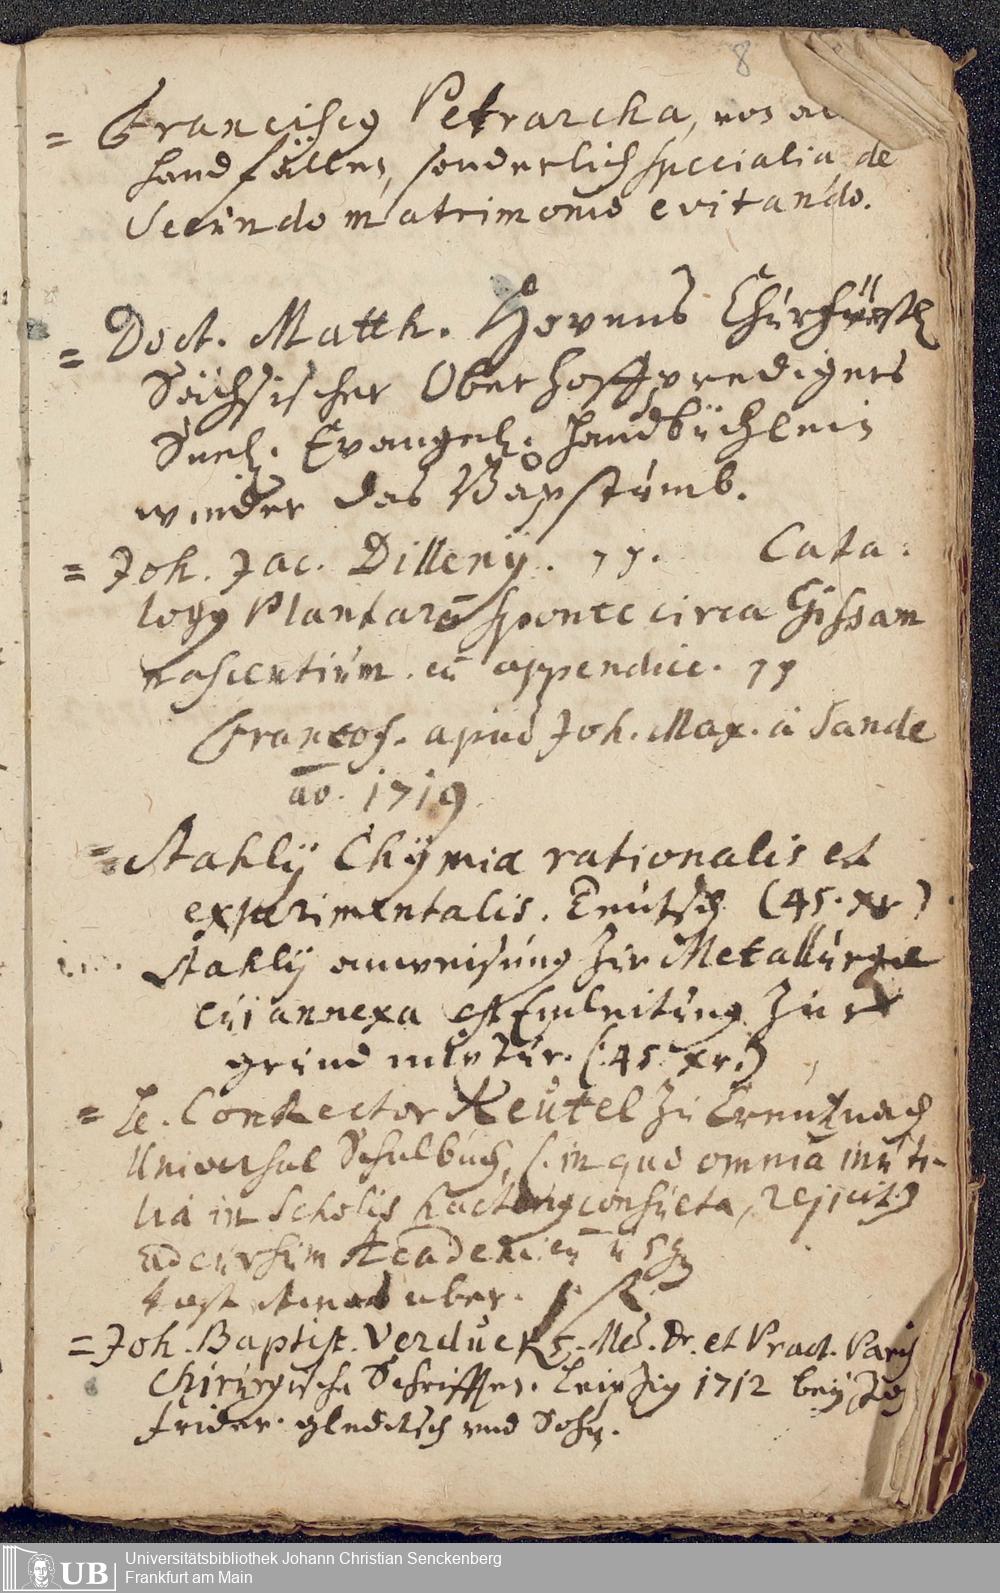 8
= Franciscq Petrarcha, von al
hand fällen, sonderlich specialia de
Secundo matrimonio evitando.
= Doct. Matth. Hovens Churfürstl
Sächsischer Oberhoffpredigers
Seel. Evangel. Handbüchlein
wieder das Bapstumb.
= Joh. Jac. Dillenÿ. Cata:
logq Plantarū sponte circa Gissam
nascentium. cū appendice.
Francof. apud Joh. Max. à Sande
ao. 1719
= Stahlÿ Chÿmia rationalis et
experimentalis. Teutsch. (45. xr)
Stahlÿ anweisung zur Metallurgie
cui annexa est Einleitung zur
grund mixtur. (: 45. xr.)
= Conrector Reutel zu Creutznach
Universal Schulbuch, (: in quo omnia inuti-
lia in Scholis hactenq consueta, rejicit
ad cursum Academicū
kost aber.
= Joh. Baptist. Verduc Med. Dr. et Pract. Paris
Chirurgische Schrifften. Leipzig 1712 beÿ Joh
frider. gleditsch und Sohn.
UB
Universitätsbibliothek Johann Christian Senckenberg
Frankfurt am Main